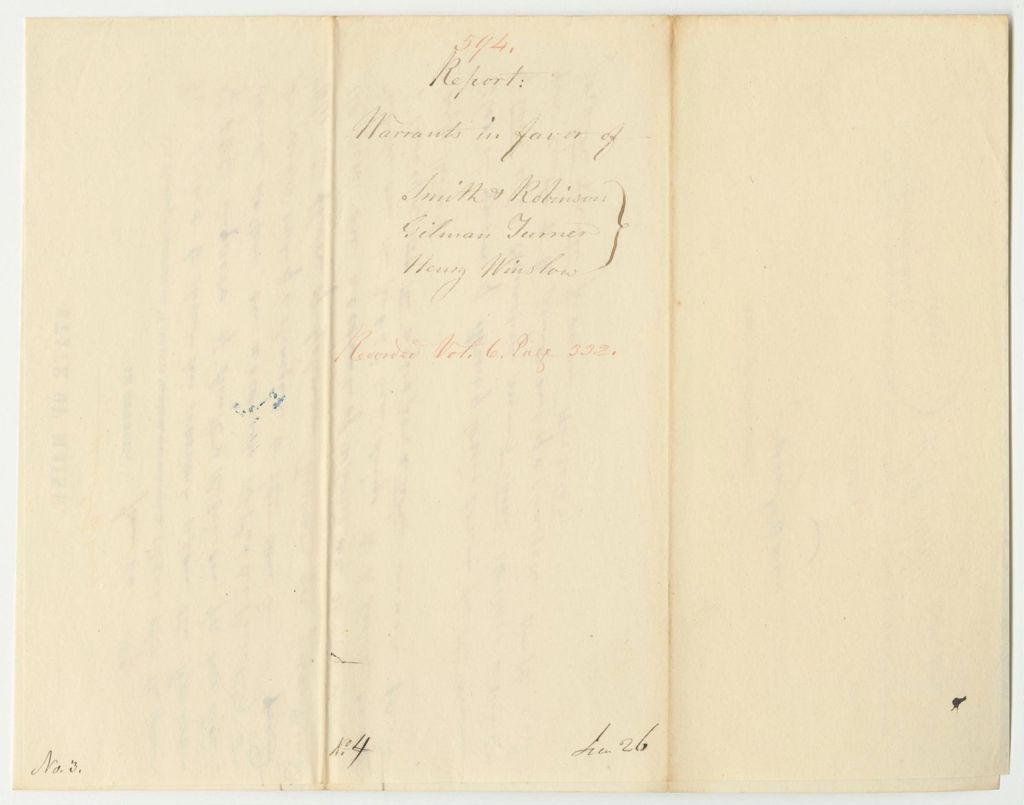 594.
Report:
Warrants in favor of
Smith & Robinson
Gilman Turner
Henry Winslow
Recorded Vol. 6. Page 332.
No. 4
26
No. 3.